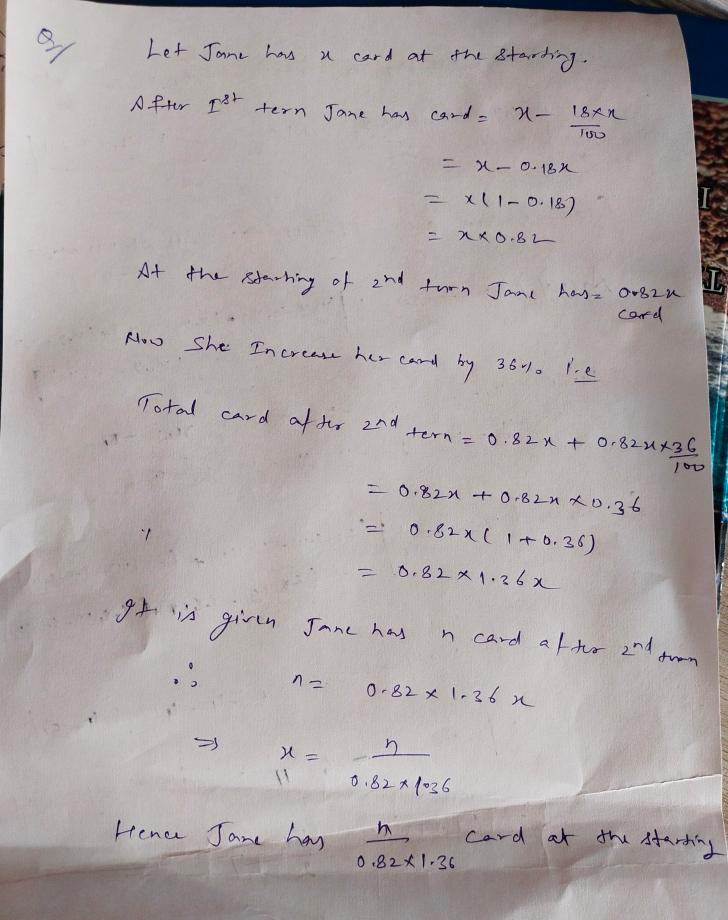 Q/ Let Jane has x card at the starting.
After Ist tern Jane has card = x - 18×x/100
= x - 0.18x
= x(1-0.18)
= x×0.82
At the starting of 2nd turn Jane has = 0.82x
card
Now She Increase her card by 36% i.e
Total card after 2nd tern = 0.82x + 0.82x×36/100
= 0.82x + 0.82x × 0.36
= 0.82x(1+0.36)
= 0.82×1.36x
It is given Jane has n card after 2nd turn
∴ n = 0.82 × 1.36 x
⇒ x = n/0.82×1.36
Hence Jane has n/0.82×1.36 card at the starting